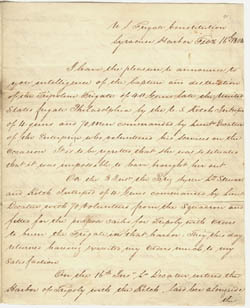 U. S. Frigate Constitution
Syracuse Harbor Feb. 1804
I have the pleasure to announce to
you intelligence of the Capture and destruction
of the Tripoline Frigate of 40 Guns late the United
States frigate Philadelphia by the U. S. Ketch
of 4 guns and 70 Men commanded by Lieut. Decatur
of the Enterprize who volunteered his Services on the
Occasion. It is to be regretted that she was so situated
that it was impossible to have brought her out
On the 3 Inst. the Lt. Stewart
and Ketch Intrepid of 4 Guns commanded by Lieut.
Decatur with 70 Volunteers from the Squadron and
fitted for the purpose sail'd for Tripoly with orders
to burn the Frigate in that harbor. They this day
returned having executed my orders much to my
Satisfaction
On the 16th Inst. Lt. Decatur entered the
Harbor of Tripoly with the Ketch, laid her alongside
the